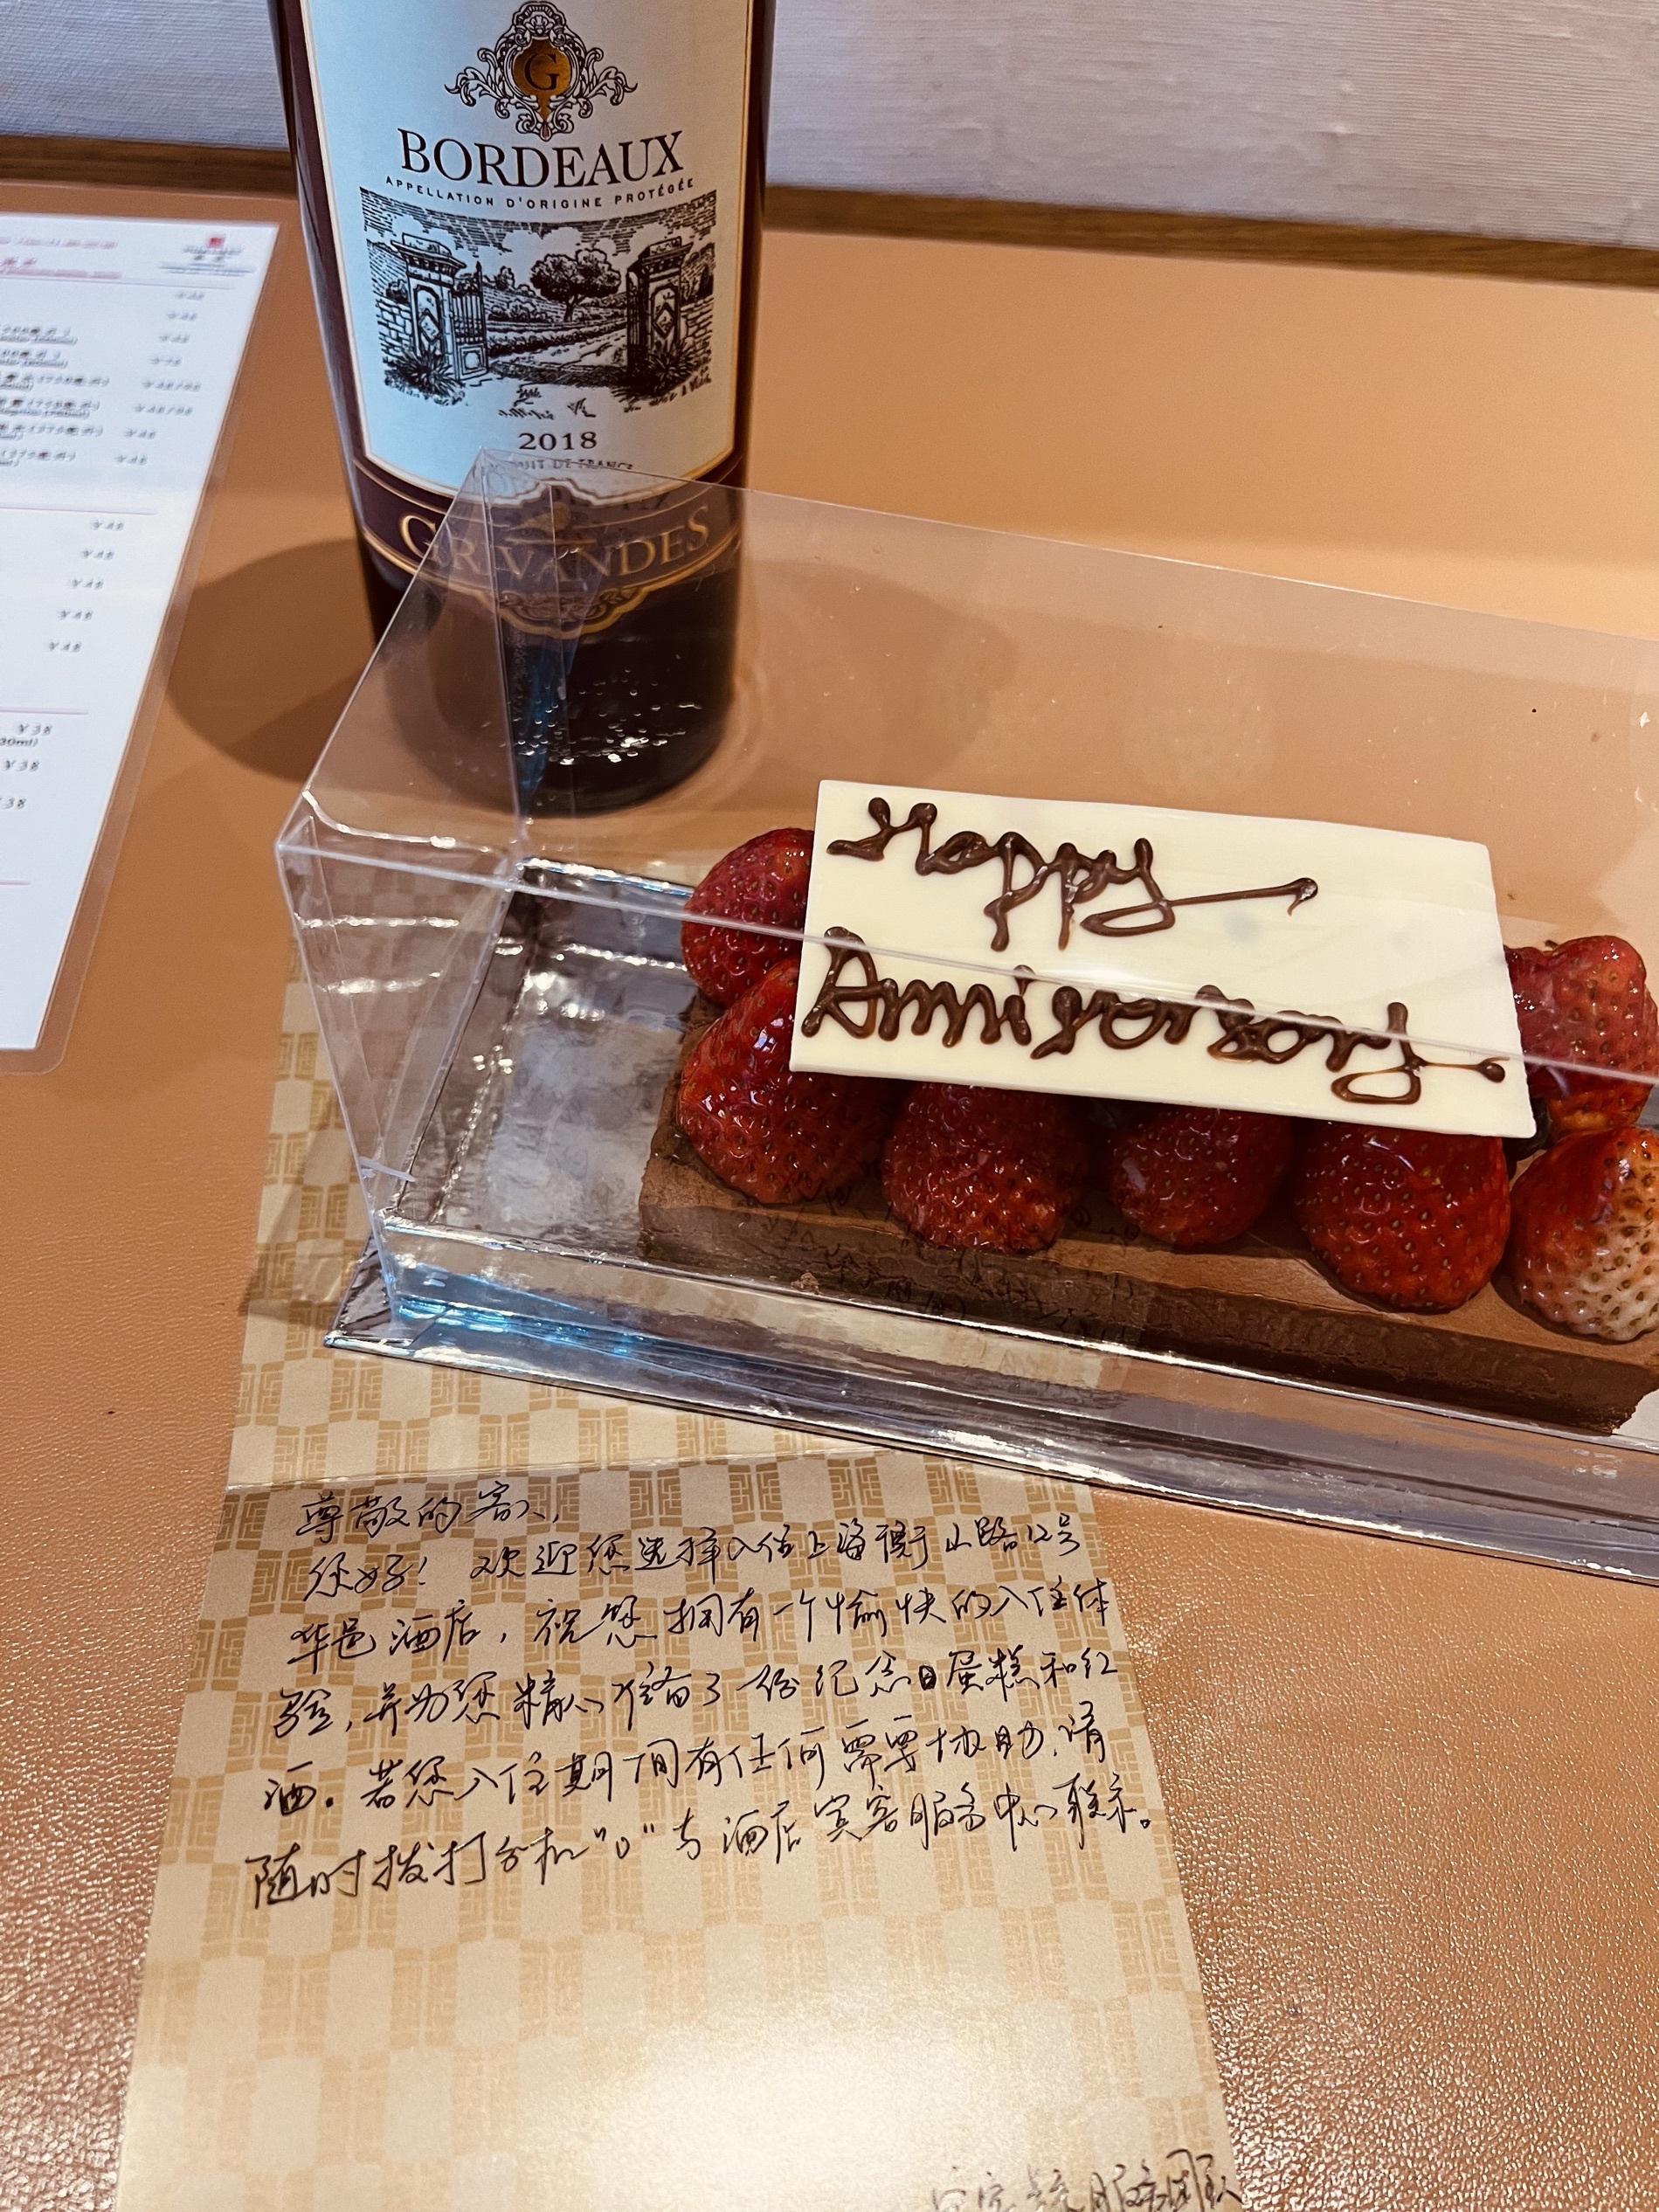 G
BORDEAUX
APPELLATION D'ORIGINE PROTÉGÉE
2018
GRIVANDES
Happy
Anniversary
尊敬的客人,
您好! 欢迎您选择入住上海衡山路12号
华邑酒店,祝您拥有一个愉快的入住体
验,并为您精心准备了一份纪念日蛋糕和红
酒。若您入住期间有任何需要协助,请
随时拨打分机“0”与酒店宾客服务中心联系。
服务团队
¥48
¥48
¥48
¥48
¥48
¥38
30ml)
¥38
38